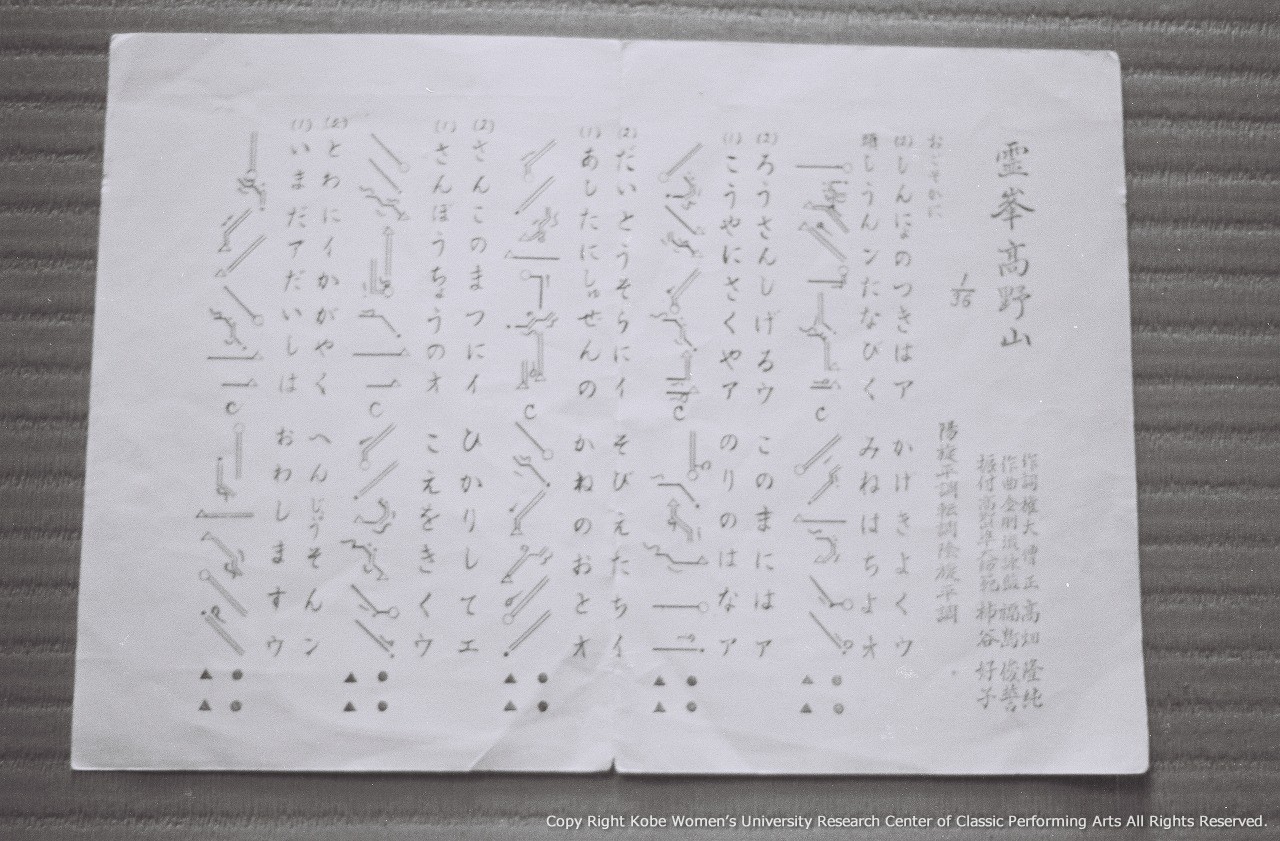 霊峯高野山
1/36
作詞権大僧正高畑隆純
作曲金剛流詠監福島俊誉
振付高野 柿谷好子
陽旋平調転調陰旋平調
おごそかに
(2)しんにょのつきはア かけきよくウ
頭しうんンたなびく みねはちよオ
(2)ろうさんしげるウ このまにはア
(1)こうやにさくやア のりのはなア
C
(2)だいとうそらにイ そびえたちイ
(1)あしたにしゅせんの かねのおとオ
C
(2)さんこのまつにイ ひかりしてエ
(1)さんぼうちょうのオ こえをきくウ
C
(2)とわにイかがやく へんじょうそんン
(1)いまだアだいしは おわしますウ
C
C
Copy Right Kobe Women's University Research Center of Classic Performing Arts All Rights Reserved.